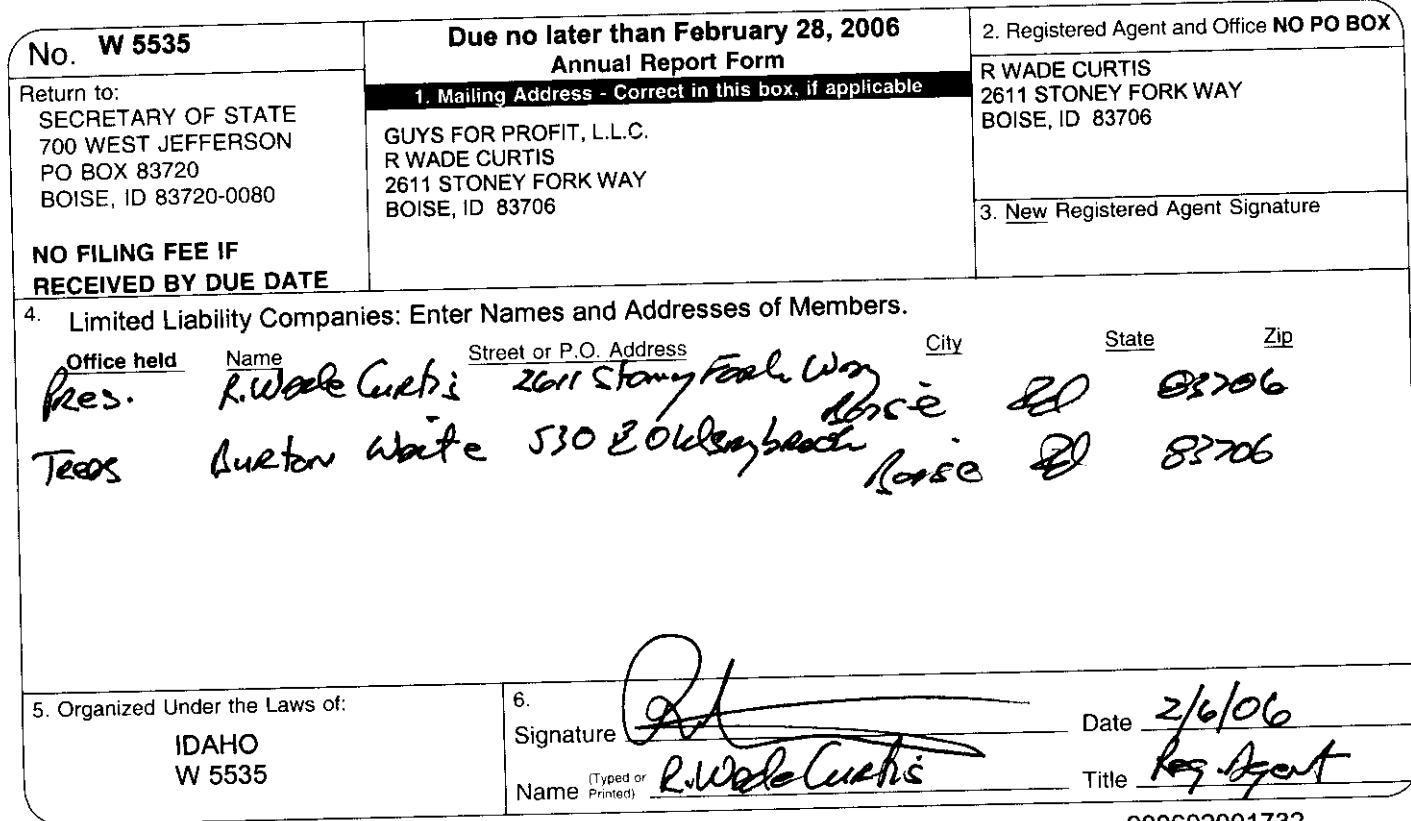 No. W 5535
Return to:
SECRETARY OF STATE
700 WEST JEFFERSON
PO BOX 83720
BOISE, ID 83720-0080
NO FILING FEE IF
RECEIVED BY DUE DATE
Due no later than February 28, 2006
Annual Report Form
1. Mailing Address - Correct in this box, if applicable
GUYS FOR PROFIT, L.L.C.
R WADE CURTIS
2611 STONEY FORK WAY
BOISE, ID 83706
2. Registered Agent and Office NO PO BOX
R WADE CURTIS
2611 STONEY FORK WAY
BOISE, ID 83706
3. New Registered Agent Signature
4. Limited Liability Companies: Enter Names and Addresses of Members.
Office held Name Street or P.O. Address City State Zip
Pres. R. Wade Curtis 2611 Stoney Fork Way Boise Id 83706
Treas Burton Waite 530 E Boise Id 83706
5. Organized Under the Laws of:
IDAHO
W 5535
6.
Signature
Date 2/6/06
Name (Typed or Printed) R. Wade Curtis
Title Reg. Agent